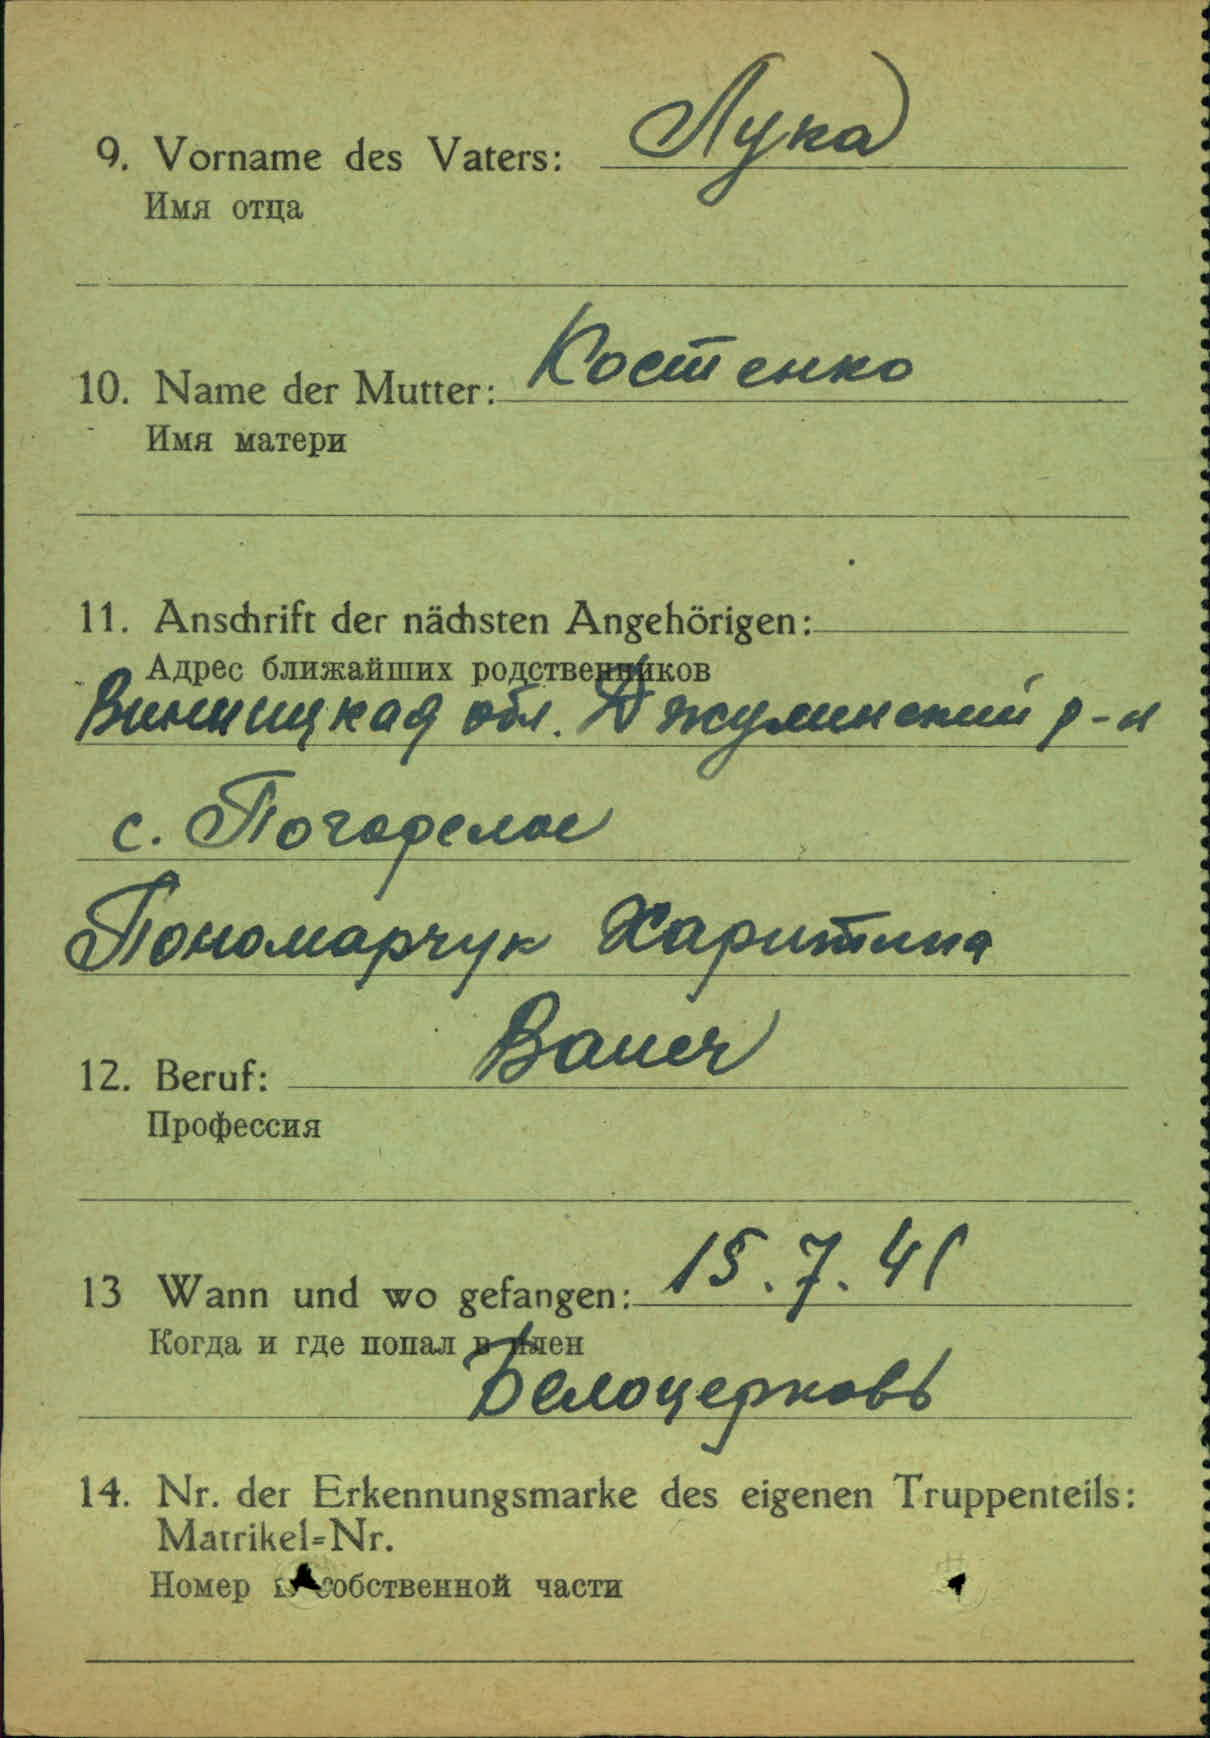 9. Vorname des Vaters: Лука
Имя отца
10. Name der Mutter: Костенко
Имя матери
11. Anschrift der nächsten Angehörigen:
Адрес ближайших родственников
Винницкая обл. Джулинский р-н
с. Погорелое
Пономарчук Харитина
12. Beruf: Bauer
Профессия
13 Wann und wo gefangen: 15.7.41
Когда и где попал в плен
Белоцерковь
14. Nr. der Erkennungsmarke des eigenen Truppenteils:
Matrikel=Nr.
Номер собственной части